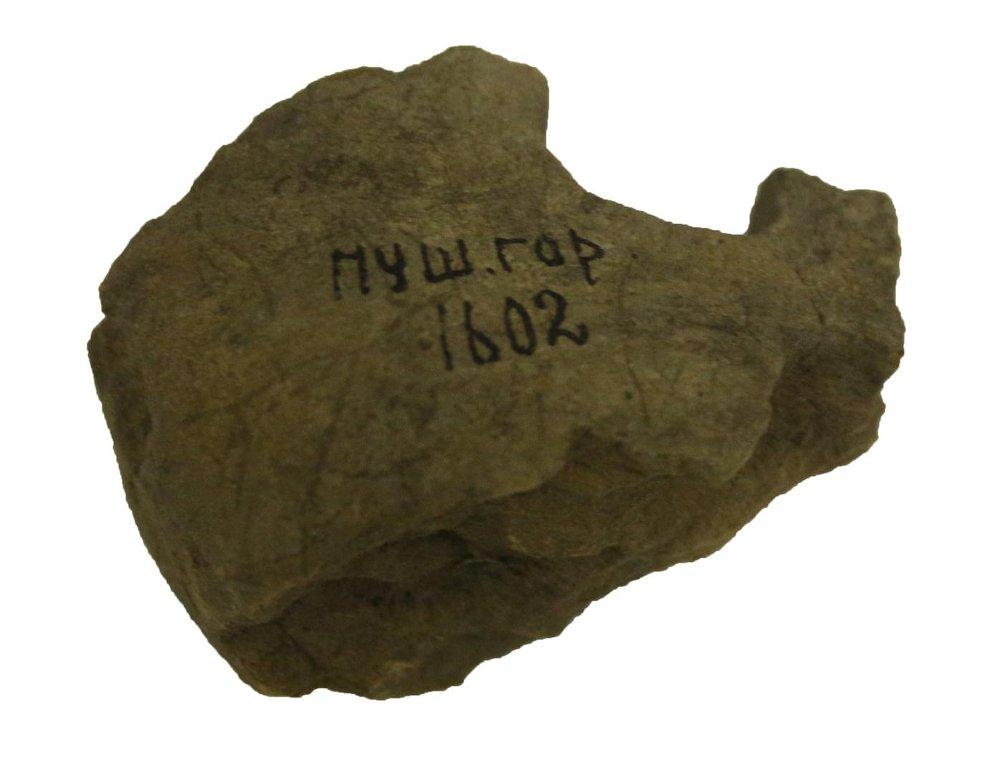 муш.гор.
1602